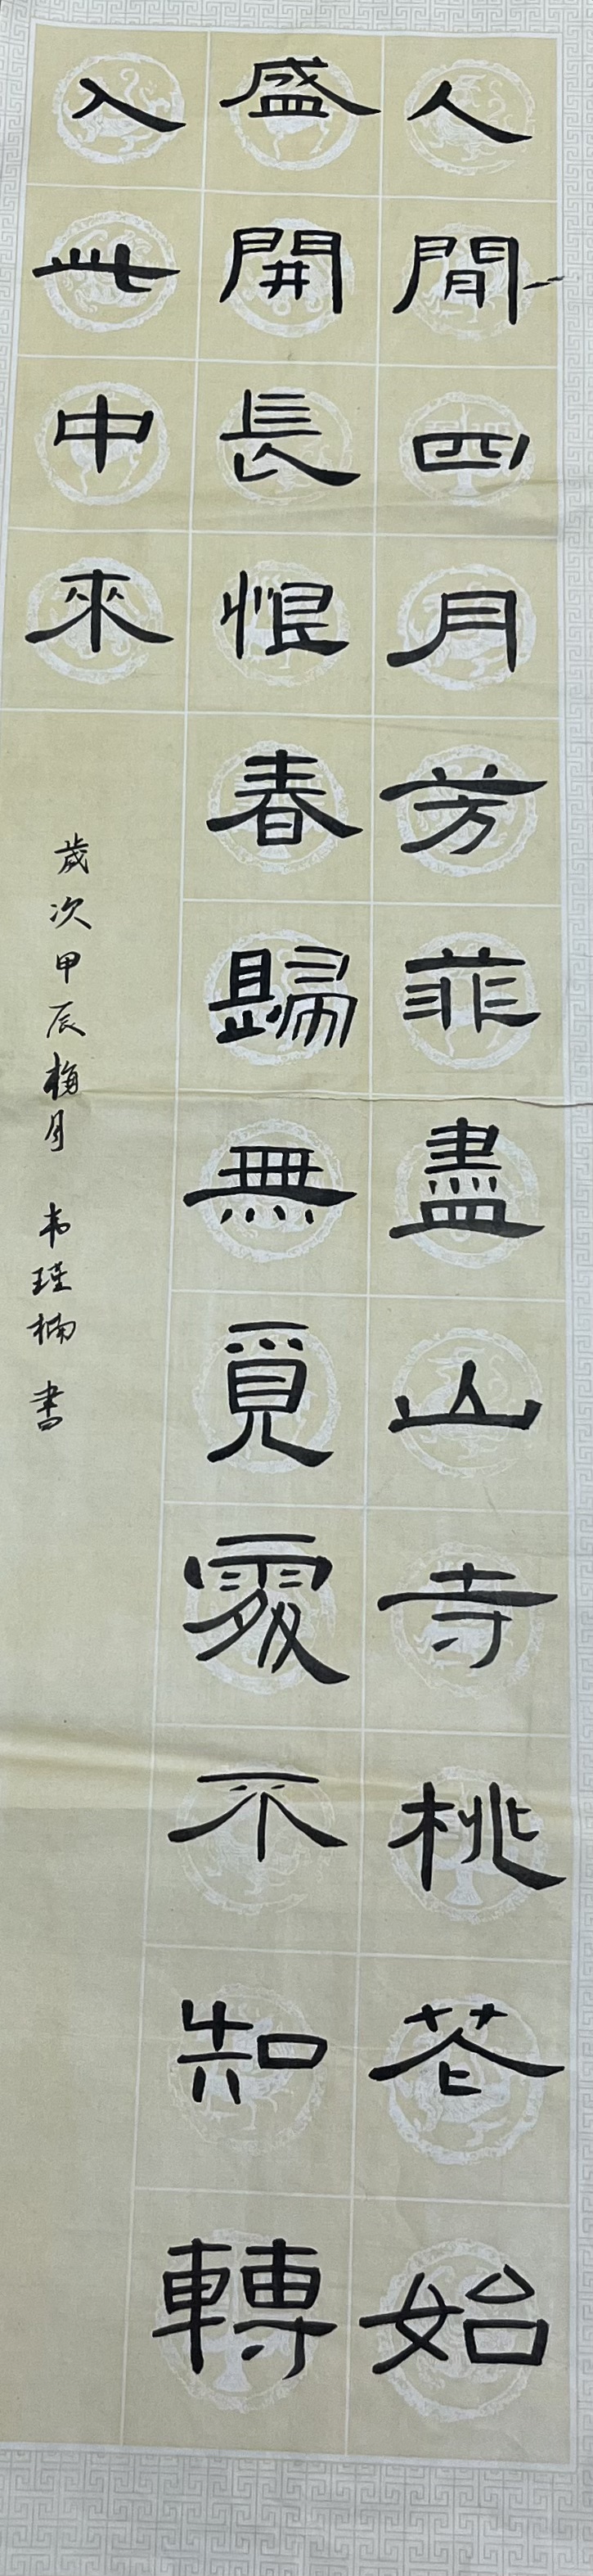 人間四月芳菲盡山寺桃花始
盛開長恨春歸無覓處不知轉
入此中來
歲次甲辰梅月 韦瑾楠 書